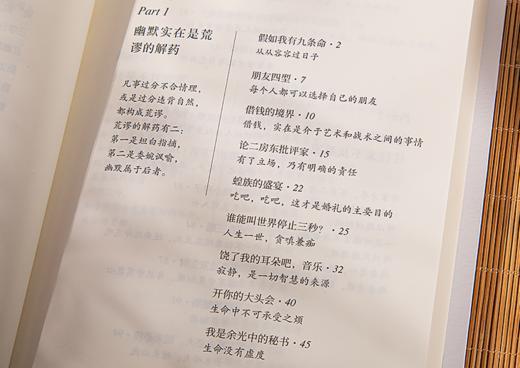 Part 1
幽默实在是荒
谬的解药
凡事过分不合情理，
或是过分违背自然，
都构成荒谬。
荒谬的解药有二：
第一是坦白指摘，
第二是委婉讽喻，
幽默属于后者。
假如我有九条命·2
从从容容过日子
朋友四型·7
每个人都可以选择自己的朋友
借钱的境界·10
借钱，实在是介于艺术和战术之间的事情
论二房东批评家·15
有了立场，乃有明确的责任
蝗族的盛宴·22
吃吧，吃吧，这才是婚礼的主要目的
谁能叫世界停止三秒？·25
人生一世，贪嗔兼痴
饶了我的耳朵吧，音乐·32
寂静，是一切智慧的来源
开你的大头会·40
生命中不可承受之烦
我是余光中的秘书·45
生命没有虚度